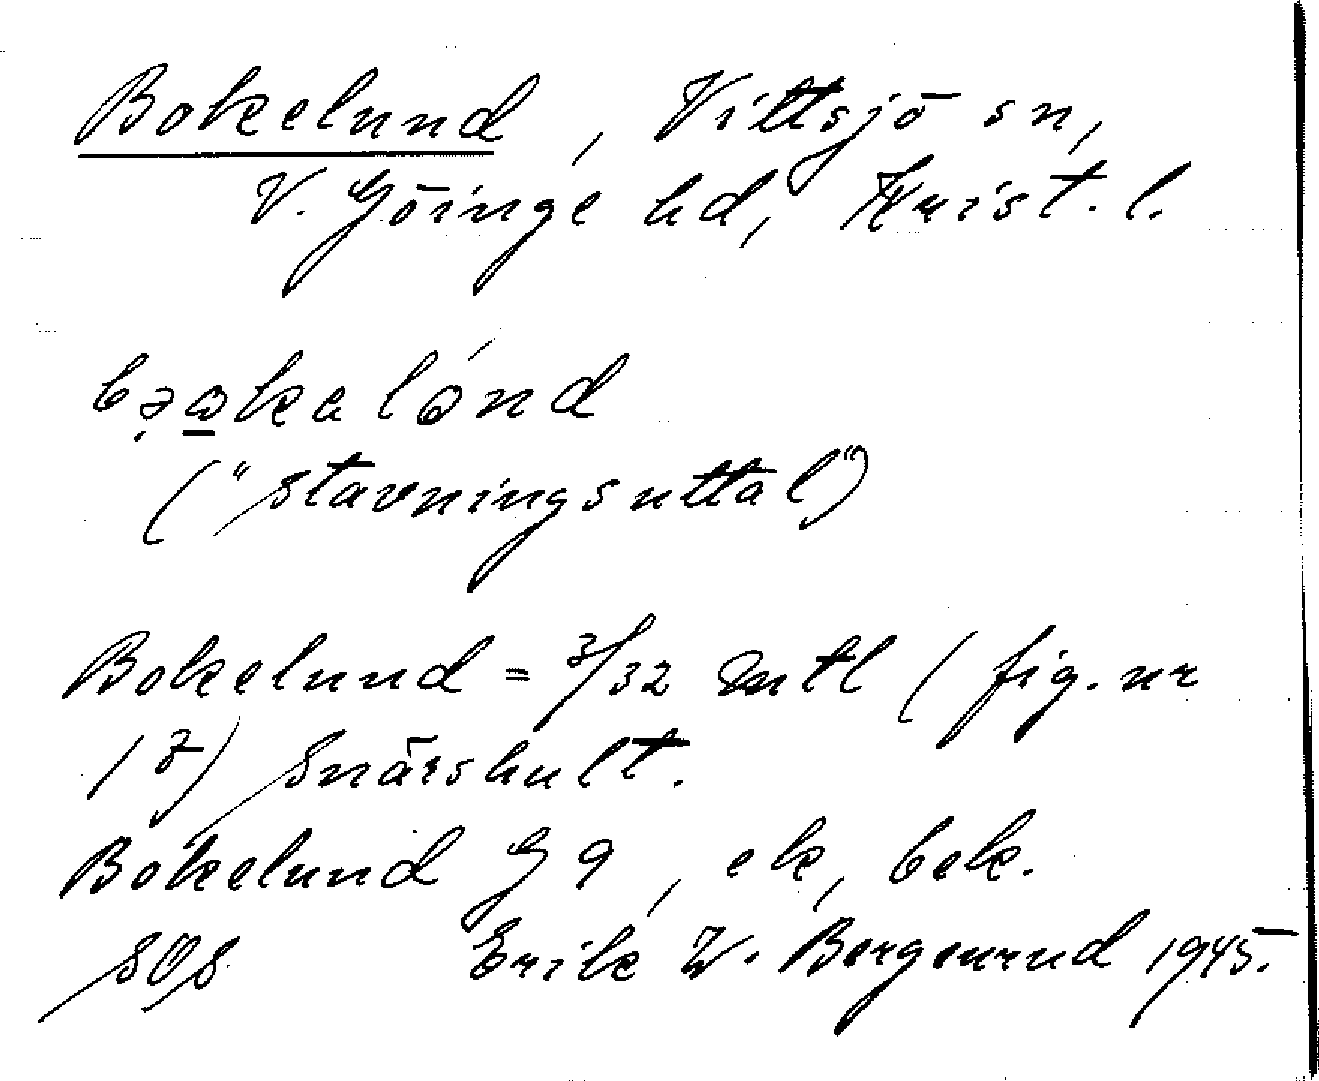 Bokelund, Vittsjö sn,
V. Göinge hd, Krist. l.
("stavningsuttal")
Bokelund = 3/32 mtl (fig. nr
17) Snärshult.
Bokelund G 9, ek, bek.
SOS Erik W. Bergenrud 1945.